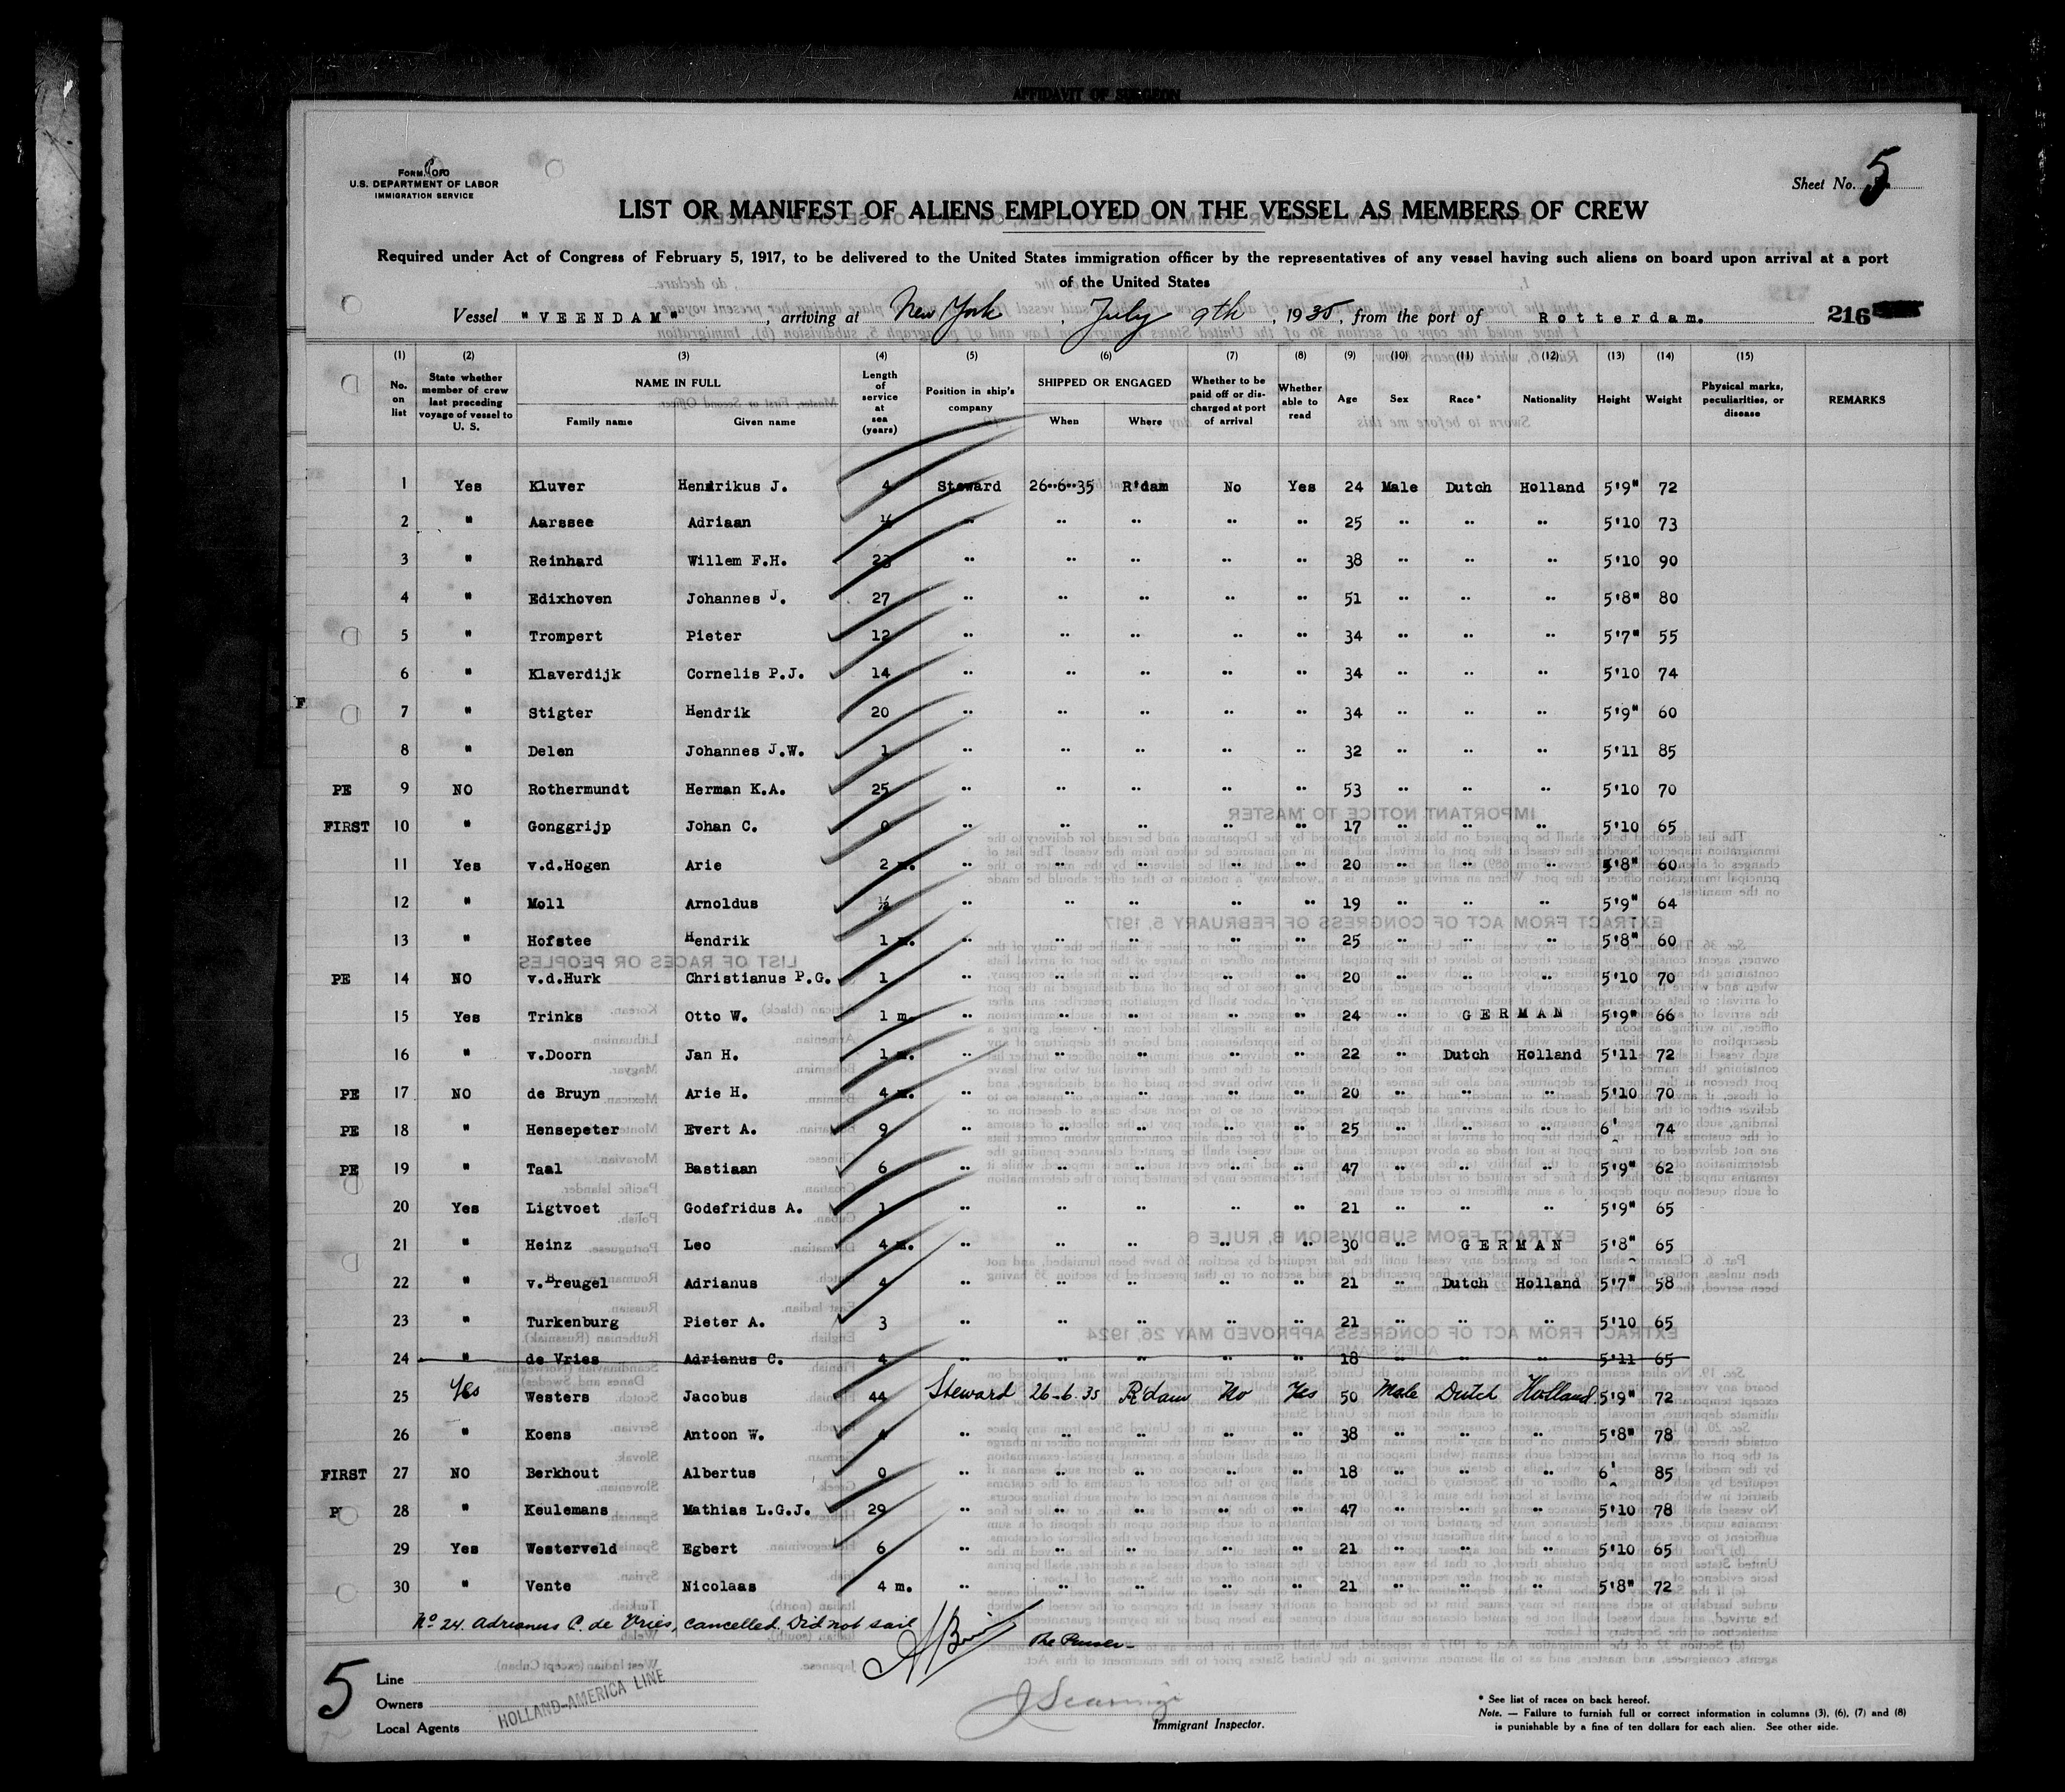 AFFIDAVIT OF SURGEON
U.S. DEPARTMENT OF LABOR
IMMIGRATION SERVICE
Sheet No. 5
LIST OR MANIFEST OF ALIENS EMPLOYED ON THE VESSEL AS MEMBERS OF CREW
Required under Act of Congress of February 5, 1917, to be delivered to the United States immigration officer by the representatives of any vessel having such aliens on board upon arrival at a port
of the United States
Vessel "VEENDAM", arriving at New York, July 9th, 1935, from the port of Rotterdam. 216
(1) (2) (3) (4) (5) (6) (7) (8) (9) (10) (11) (12) (13) (14) (15)
No. on list State whether member of crew last preceding voyage of vessel to U. S. NAME IN FULL Family name Given name Length of service at sea (years) Position in ship's company SHIPPED OR ENGAGED When Where Whether to be paid off or discharged at port of arrival Whether able to read Age Sex Race* Nationality Height Weight Physical marks, peculiarities, or disease REMARKS
1 Yes Kluver Hendrikus J. 4 Steward 26-6-35 R'dam No Yes 24 Male Dutch Holland 5'9" 72
2 " Aarssee Adriaan ½ " " " " " 25 " " " 5'10 73
3 " Reinhard Willem F.H. 23 " " " " " 38 " " " 5'10 90
4 " Edixhoven Johannes J. 27 " " " " " 51 " " " 5'8" 80
5 " Trompert Pieter 12 " " " " " 34 " " " 5'7" 55
6 " Klaverdijk Cornelis P.J. 14 " " " " " 34 " " " 5'10 74
7 " Stigter Hendrik 20 " " " " " 34 " " " 5'9" 60
8 " Delen Johannes J.W. 1 " " " " " 32 " " " 5'11 85
PE 9 NO Rothermundt Herman K.A. 25 " " " " " 53 " " " 5'10 70
FIRST 10 " Gonggrijp Johan C. 0 " " " " " 17 " " " 5'10 65
11 Yes v.d.Hogen Arie 2 m. " " " " " 20 " " " 5'8" 60
12 " Moll Arnoldus ½ " " " " " 19 " " " 5'9" 64
13 " Hofstee Hendrik 1 m. " " " " " 25 " " " 5'8" 60
PE 14 NO v.d.Hurk Christianus P.G. 1 " " " " " 20 " " " 5'10 70
15 Yes Trinks Otto W. 1 m. " " " " " 24 " GERMAN 5'9" 66
16 " v.Doorn Jan H. 1 m. " " " " " 22 " Dutch Holland 5'11 72
PE 17 NO de Bruyn Arie H. 4 m. " " " " " 20 " " " 5'10 70
PE 18 " Hensepeter Evert A. 9 " " " " " 25 " " " 6' 74
PE 19 " Taal Bastiaan 6 " " " " " 47 " " " 5'9" 62
20 Yes Ligtvoet Godefridus A. 1 " " " " " 21 " " " 5'9" 65
21 " Heinz Leo 4 m. " " " " " 30 " GERMAN 5'8" 65
22 " v.Breugel Adrianus 4 " " " " " 21 " Dutch Holland 5'7" 58
23 " Turkenburg Pieter A. 3 " " " " " 21 " " " 5'10 65
24 " de Vries Adrianus C. 4 " " " " " 18 " " " 5'11 65
25 Yes Westers Jacobus 44 Steward 26-6-35 R'dam No Yes 50 Male Dutch Holland 5'9" 72
26 " Koens Antoon W. 4 " " " " " 38 " " " 5'8" 78
FIRST 27 NO Berkhout Albertus 0 " " " " " 18 " " " 6' 85
28 " Keulemans Mathias L.G.J. 29 " " " " " 47 " " " 5'10 78
29 Yes Westerveld Egbert 6 " " " " " 21 " " " 5'10 65
30 " Vente Nicolaas 4 m. " " " " " 21 " " " 5'8" 72
No 24. Adrianus C. de Vries, cancelled. Did not sail
The Purser
5
Line
Owners HOLLAND-AMERICA LINE
Local Agents
Immigrant Inspector.
* See list of races on back hereof.
Note. — Failure to furnish full or correct information in columns (3), (6), (7) and (8)
is punishable by a fine of ten dollars for each alien. See other side.